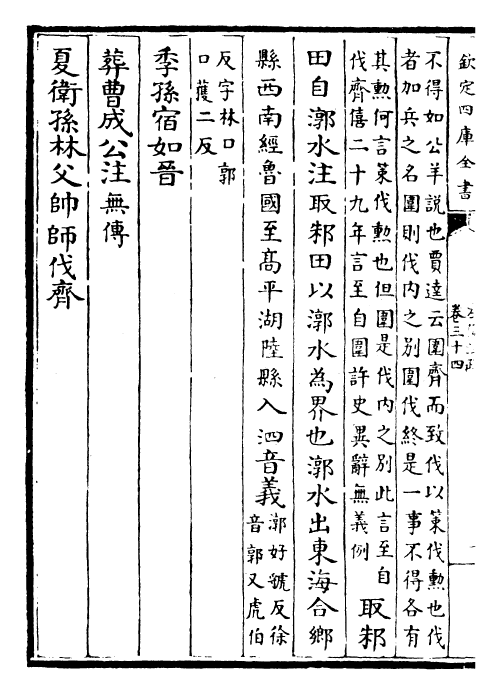 欽定四庫全書
卷三十四
不得如公羊説也賈逵云圍齊而致伐以策伐勲也伐
者加兵之名圍則伐内之别圍伐終是一事不得各有
其勲何言策伐勲也但圍是伐内之别此言至自
伐齊僖二十九年言至自圍許史異辭無義例
取邾
田自漷水注取邾田以漷水為界也漷水出東海合鄉
縣西南經魯國至髙平湖陸縣入泗音義
漷好虢反徐
音郭又虎伯
反字林口郭
口䕶二反
季孫宿如晉
葬曹成公注無傳
夏衛孫林父帥師伐齊